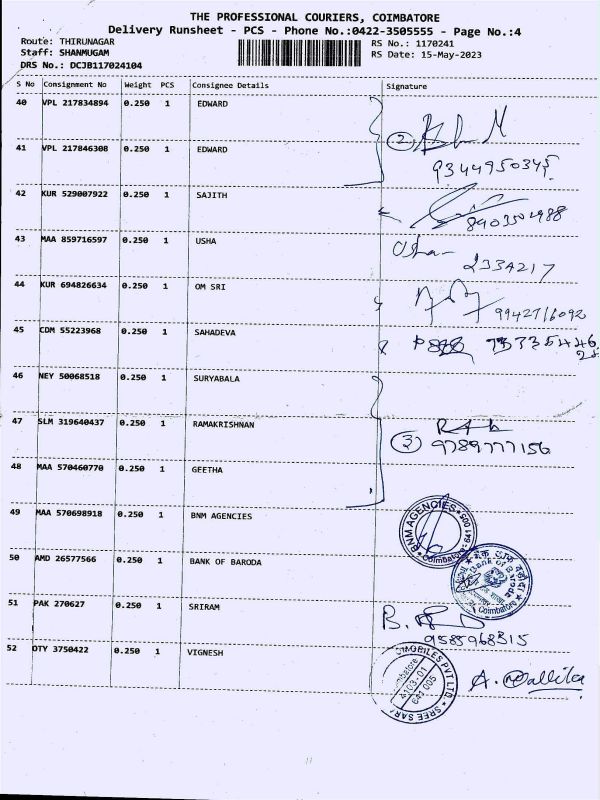 THE PROFESSIONAL COURIERS, COIMBATORE
Delivery Runsheet - PCS - Phone No.:0422-3505555 - Page No.:4
Route: THIRUNAGAR
RS No.: 1170241
Staff: SHANMUGAM
RS Date: 15-May-2023
DRS No.: DCJB117024104
S No Consignment No Weight PCS Consignee Details Signature
40 VPL 217834894 0.250 1 EDWARD
2
41 VPL 217846308 0.250 1 EDWARD
9344950345
42 KUR 529007922 0.250 1 SAJITH
43 MAA 859716597 0.250 1 USHA
Usha
44 KUR 694826634 0.250 1 OM SRI
45 CDM 55223968 0.250 1 SAHADEVA
46 NEY 50068518 0.250 1 SURYABALA
47 SLM 319640437 0.250 1 RAMAKRISHNAN
3 9789777156
48 MAA 570460770 0.250 1 GEETHA
49 MAA 570698918 0.250 1 BNM AGENCIES
BNM AGENCIES
Coimbatore
50 AMD 26577566 0.250 1 BANK OF BARODA
Bank of Baroda
Coimbatore
51 PAK 270627 0.250 1 SRIRAM
9585968315
52 OTY 3750422 0.250 1 VIGNESH
MOBILES PVT LTD.
641 005
SREE SARA